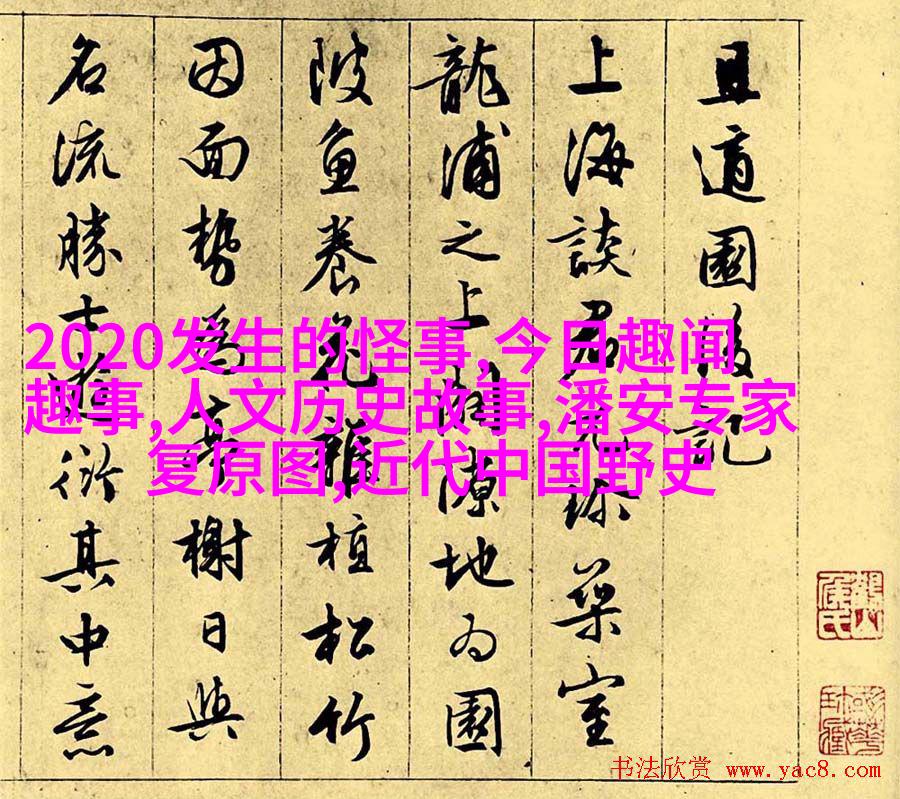 且適園後記
上海談君元珎築室
龍浦之上隙地为園
陂魚養花雜植松竹
因面勢為亭榭日與
名流勝士游衍其中意
2020发生的怪事,今日趣闻
趣事,人文历史故事,潘安专家
复原图,近代中国野史
书法欣赏 www.yac8.com